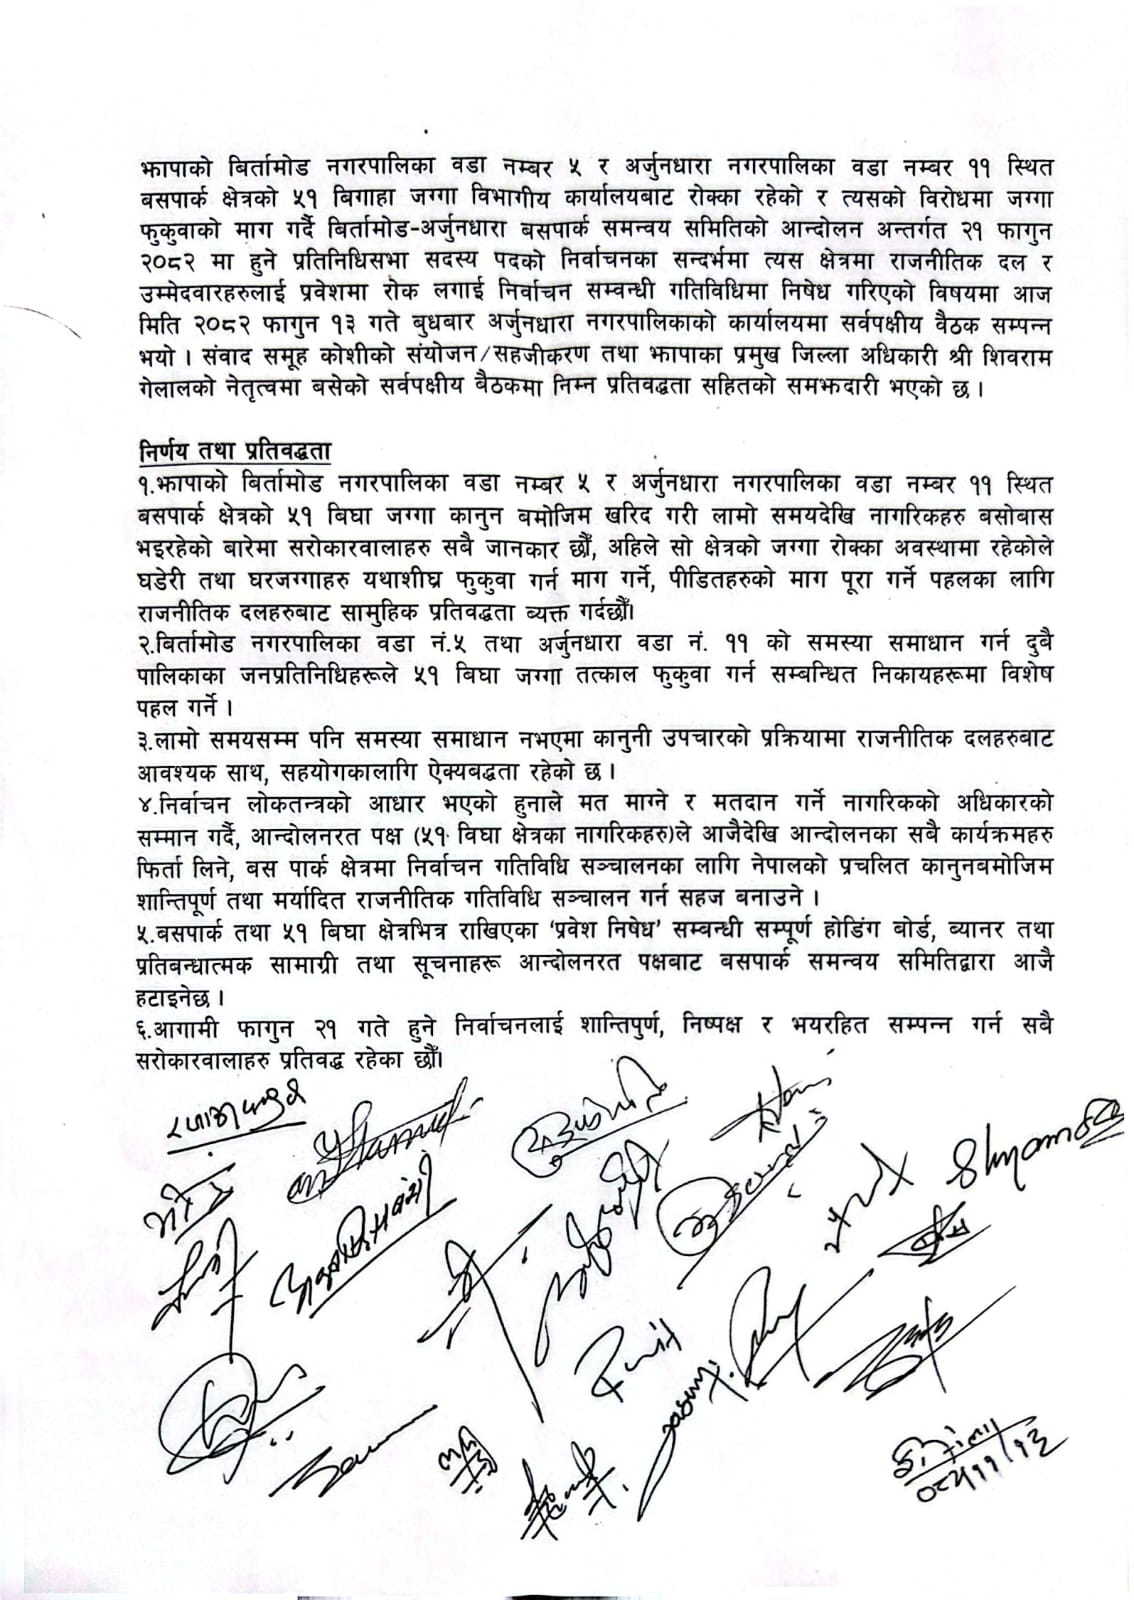 झापाको बिर्तामोड नगरपालिका वडा नम्बर ५ र अर्जुनधारा नगरपालिका वडा नम्बर ११ स्थित
बसपार्क क्षेत्रको ५१ बिगाहा जग्गा विभागीय कार्यालयबाट रोक्का रहेको र त्यसको विरोधमा जग्गा
फुकुवाको माग गर्दै बिर्तामोड-अर्जुनधारा बसपार्क समन्वय समितिको आन्दोलन अन्तर्गत २१ फागुन
२०८२ मा हुने प्रतिनिधिसभा सदस्य पदको निर्वाचनका सन्दर्भमा त्यस क्षेत्रमा राजनीतिक दल र
उम्मेदवारहरुलाई प्रवेशमा रोक लगाई निर्वाचन सम्वन्धी गतिविधिमा निषेध गरिएको विषयमा आज
मिति २०८२ फागुन १३ गते बुधबार अर्जुनधारा नगरपालिकाको कार्यालयमा सर्वपक्षीय वैठक सम्पन्न
भयो । संवाद समूह कोशीको संयोजन/सहजीकरण तथा झापाका प्रमुख जिल्ला अधिकारी श्री शिवराम
गेलालको नेतृत्वमा बसेको सर्वपक्षीय बैठकमा निम्न प्रतिवद्धता सहितको समझदारी भएको छ ।
निर्णय तथा प्रतिवद्धता
१.झापाको बिर्तामोड नगरपालिका वडा नम्बर ५ र अर्जुनधारा नगरपालिका वडा नम्बर ११ स्थित
बसपार्क क्षेत्रको ५१ बिघा जग्गा कानुन बमोजिम खरिद गरी लामो समयदेखि नागरिकहरु बसोबास
भइरहेको बारेमा सरोकारवालाहरु सबै जानकार छौँ, अहिले सो क्षेत्रको जग्गा रोक्का अवस्थामा रहेकोले
घडेरी तथा घरजग्गाहरु यथाशीघ्र फुकुवा गर्न माग गर्ने, पीडितहरुको माग पूरा गर्ने पहलका लागि
राजनीतिक दलहरुबाट सामुहिक प्रतिवद्धता व्यक्त गर्दछौँ।
२.बिर्तामोड नगरपालिका वडा नं.५ तथा अर्जुनधारा वडा नं. ११ को समस्या समाधान गर्न दुबै
पालिकाका जनप्रतिनिधिहरूले ५१ बिघा जग्गा तत्काल फुकुवा गर्न सम्बन्धित निकायहरूमा विशेष
पहल गर्ने ।
३.लामो समयसम्म पनि समस्या समाधान नभएमा कानुनी उपचारको प्रक्रियामा राजनीतिक दलहरुबाट
आवश्यक साथ, सहयोगकालागि ऐक्यबद्धता रहेको छ ।
४.निर्वाचन लोकतन्त्रको आधार भएको हुनाले मत माग्ने र मतदान गर्ने नागरिकको अधिकारको
सम्मान गर्दै, आन्दोलनरत पक्ष (५१ विघा क्षेत्रका नागरिकहरु)ले आजैदेखि आन्दोलनका सबै कार्यक्रमहरु
फिर्ता लिने, बस पार्क क्षेत्रमा निर्वाचन गतिविधि सञ्चालनका लागि नेपालको प्रचलित कानुनबमोजिम
शान्तिपूर्ण तथा मर्यादित राजनीतिक गतिविधि सञ्चालन गर्न सहज बनाउने ।
५.बसपार्क तथा ५१ बिघा क्षेत्रभित्र राखिएका ‘प्रवेश निषेध’ सम्बन्धी सम्पूर्ण होर्डिङ बोर्ड, ब्यानर तथा
प्रतिबन्धात्मक सामाग्री तथा सूचनाहरू आन्दोलनरत पक्षबाट बसपार्क समन्वय समितिद्वारा आजै
हटाइनेछ ।
६.आगामी फागुन २१ गते हुने निर्वाचनलाई शान्तिपुर्ण, निष्पक्ष र भयरहित सम्पन्न गर्न सबै
सरोकारवालाहरु प्रतिवद्ध रहेका छौँ।